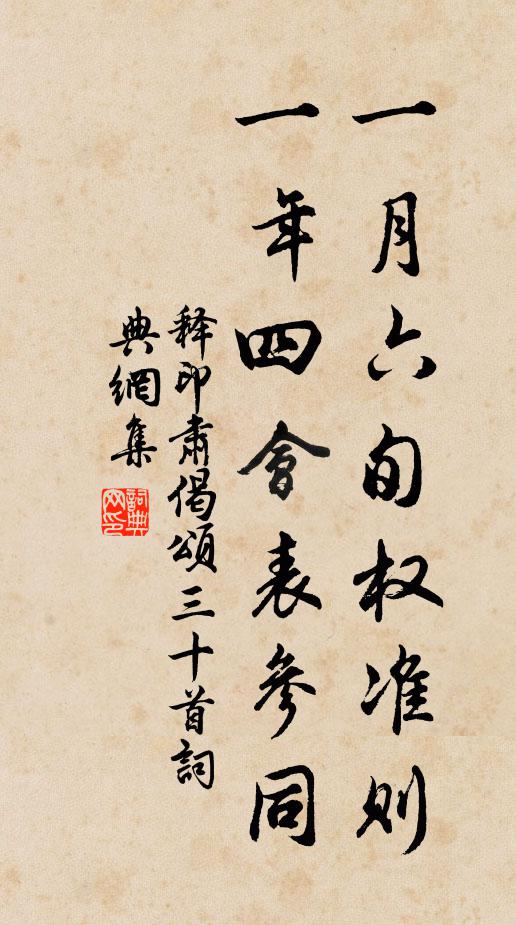 一月六旬权准则
一年四會表參同
释印肃偈頌三十首詞
典網集
詞典網印